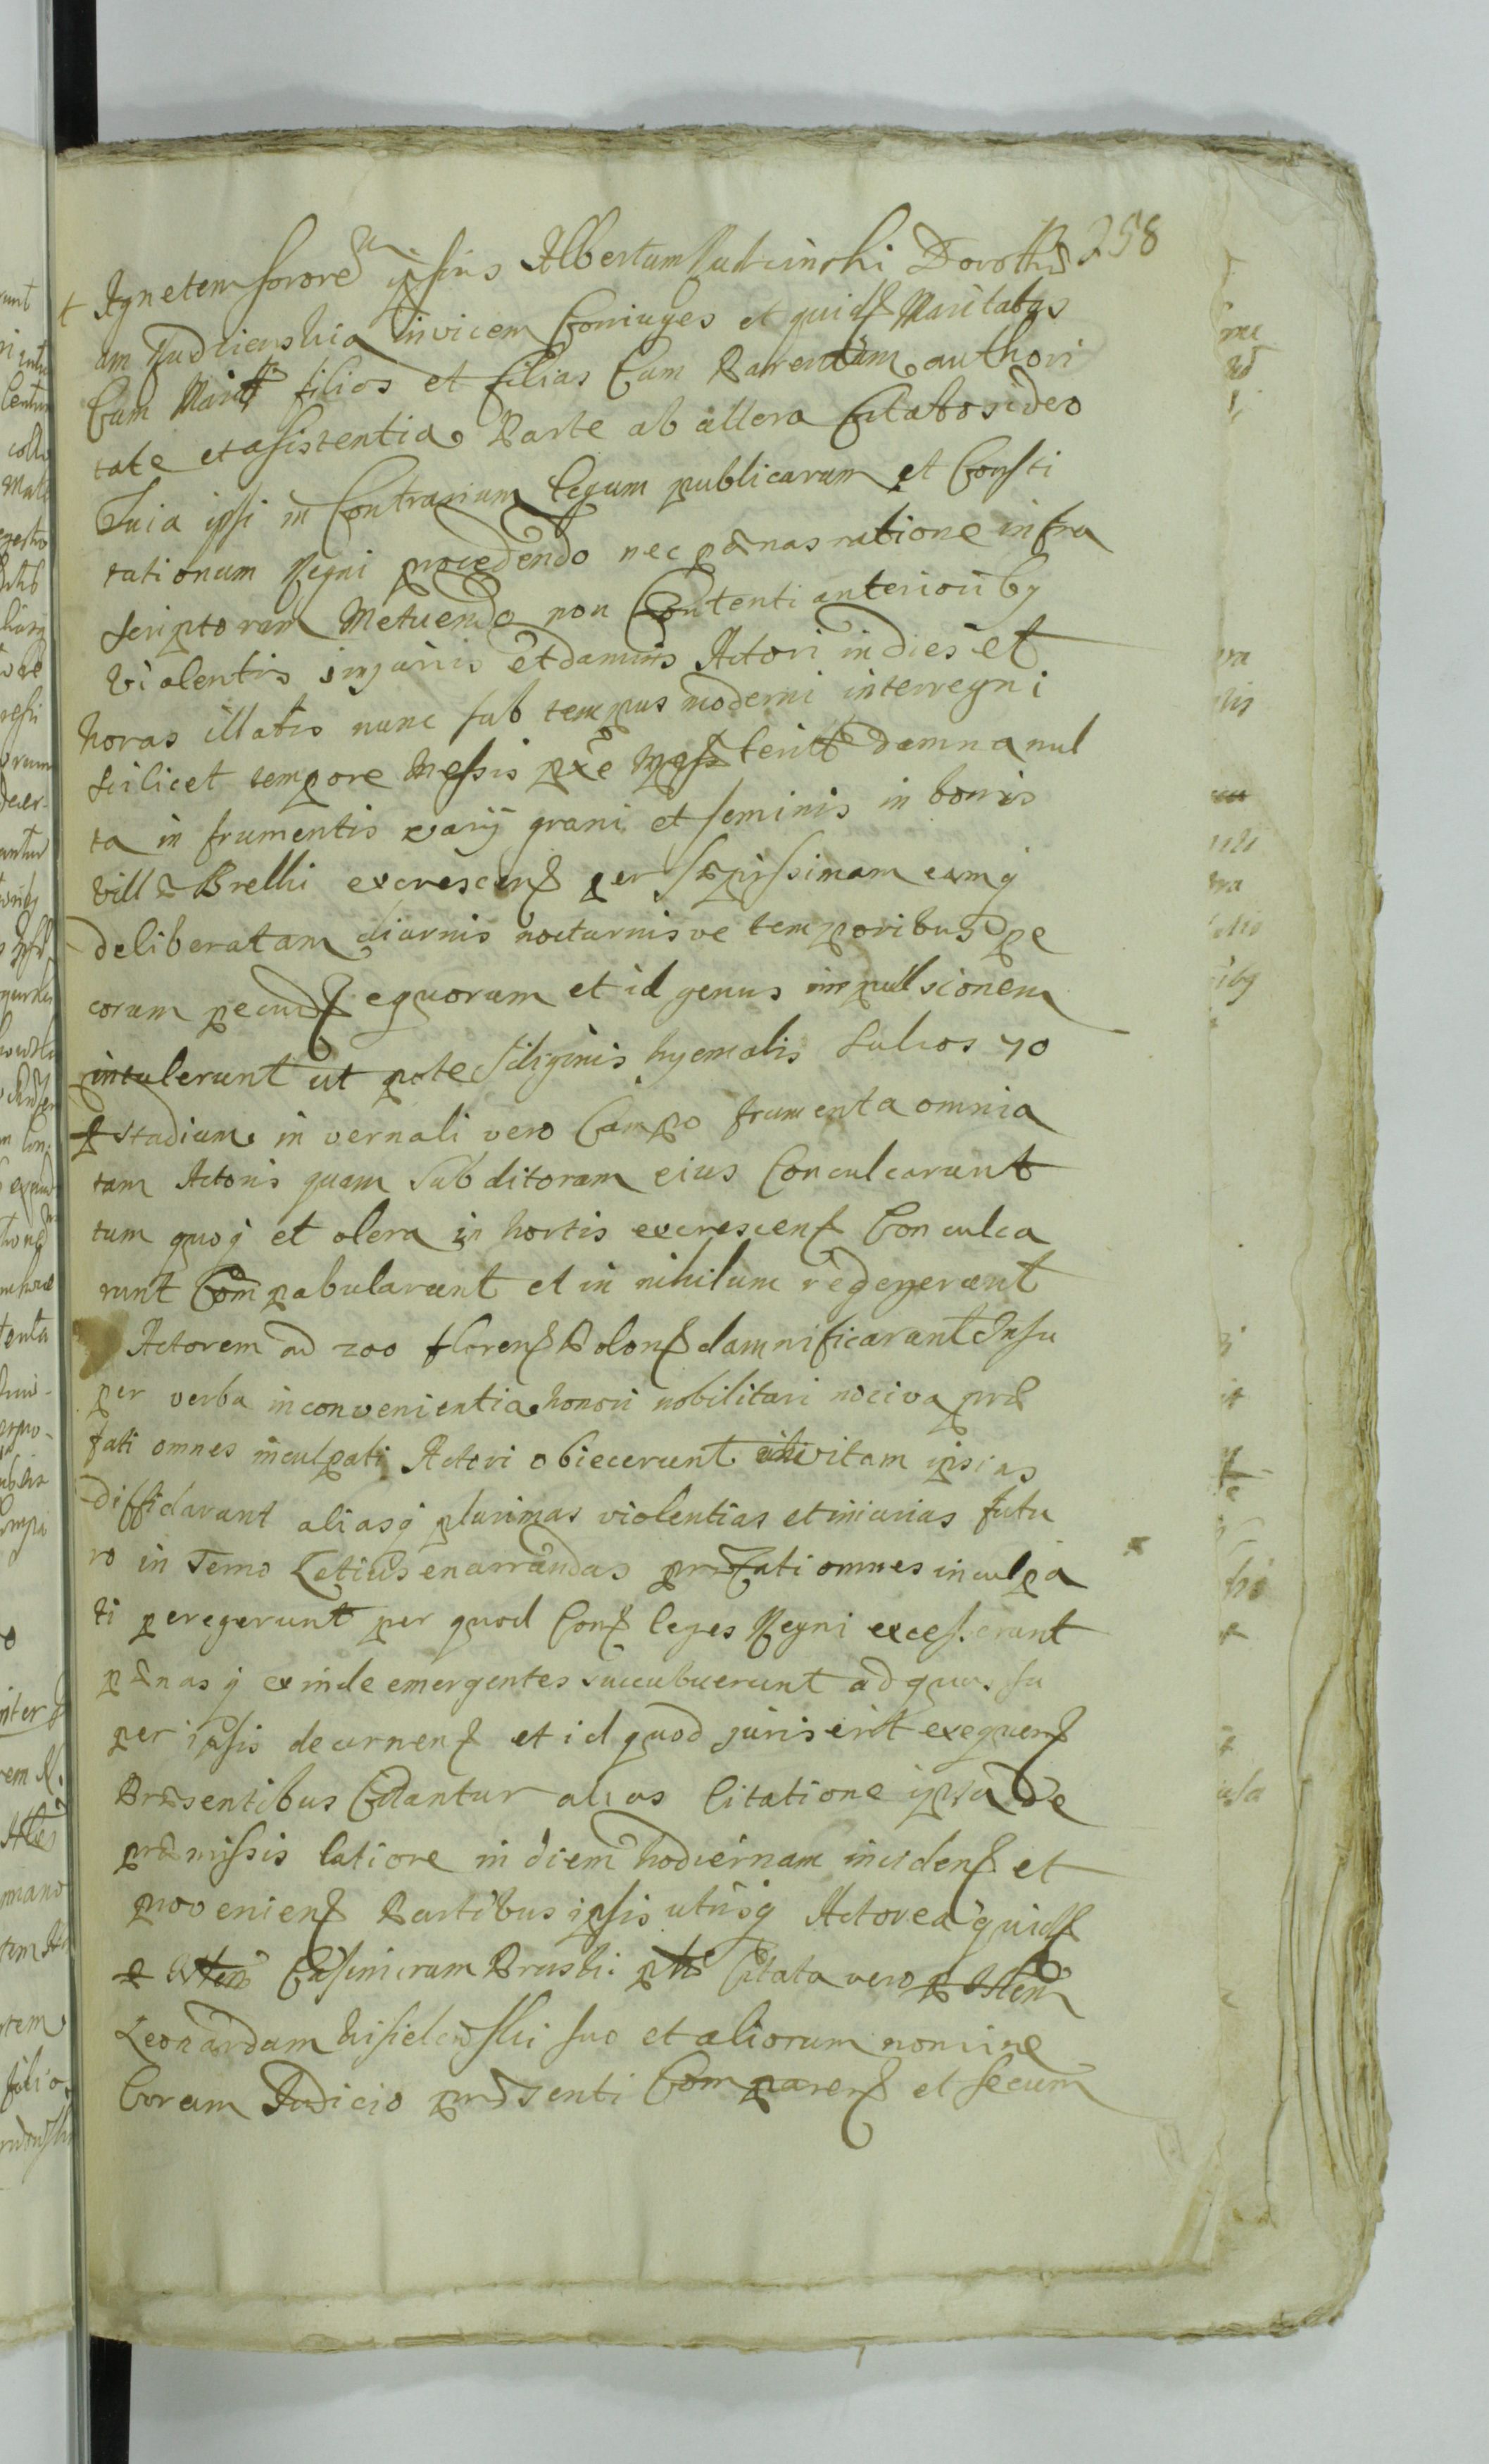 258
Agnetem sororem ipsius Albertum Rudzinski Dorothe
am Rudzienskia invicem Coniuges et quidē Maritatas
Cum Marit filios et filias Cum Parentum authori
tate et asistentia Parte ab altera Citatos ideo
Quia ipsi in Contrarium legum publicarum et Consti
tutionum Regni procedendo nec pænas ratione infra
scriptorum Metuendo non Contenti anterioribus
violentis injuriis et damnis Actori in dies et
horas illatis nunc sub tempus moderni interregni
scilicet tempore Messis damna mul
ta in frumentis varij grani et seminis in bonis
villæ Brelki excrescen per sæpissimam eamq
deliberatam diurnis nocturnisve temporibus pe
corum pecud equorum et id genus impulsionem
intulerunt ut pote Siliginis hyemalis Sulcos 70
p stadium in vernali vero Campo frumenta omnia
tam Actoris quam Subditorum eius Conculcarunt
tum quoq et olera in hortis excrescen Conculca
runt Compabularunt et in nihilum redegerunt
Actorem ad 200 floren Polon damnificarunt Insu
per verba inconvenientia honori nobilitari nociva præ
fati omnes inculpati Actori obiecerunt vitam ipsius
diffidarunt aliasq plurimas violentias et iniurias futu
ro in Termo Latius enarrandas præfati omnes inculpa
ti peregerunt per quod Con leges Regni excesserunt
pænasq exinde emergentes succubuerunt ad quas su
per ipsis decernen et id quod juris erit exequen
Præsentibus Citantur alias Citatione ipsa de
præmissis latiore in diem hodiernam inciden et
provenien Partibus ipsis utrisq Actorea quid
Casimirum Bruski Citata vero p
Leonardum Kisielewski suo et aliorum nomine
Coram Judicio præsenti Comparen et secum